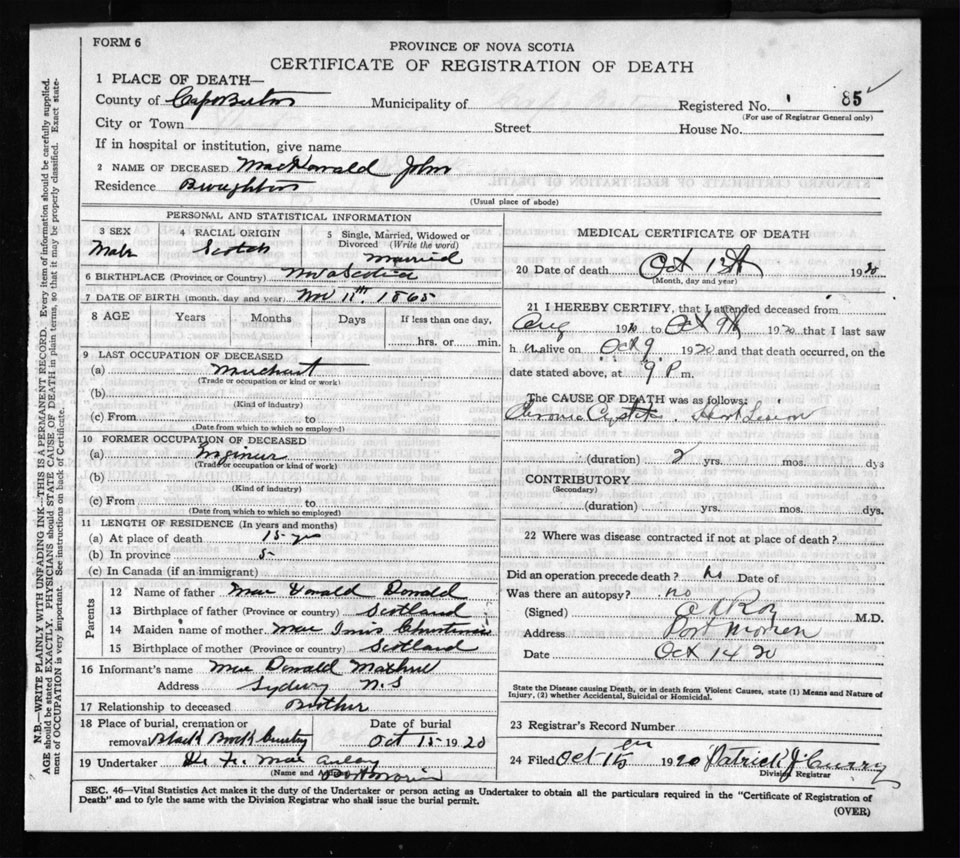 FORM 6
PROVINCE OF NOVA SCOTIA
CERTIFICATE OF REGISTRATION OF DEATH
1 PLACE OF DEATH—
County of Cape Breton Municipality of Registered No. 85
(For use of Registrar General only)
City or Town Street House No.
If in hospital or institution, give name
2 NAME OF DECEASED MacDonald John
Residence Broughton
(Usual place of abode)
PERSONAL AND STATISTICAL INFORMATION
3 SEX 4 RACIAL ORIGIN 5 Single, Married, Widowed or Divorced (Write the word)
Male Scotch Married
6 BIRTHPLACE (Province or Country) Nova Scotia
7 DATE OF BIRTH (month, day and year) Nov 11th 1865
8 AGE Years Months Days If less than one day,
hrs. or min.
9 LAST OCCUPATION OF DECEASED
(a) Merchant
(Trade or occupation or kind or work)
(b)
(Kind of industry)
(c) From to
(Date from which to which so employed)
10 FORMER OCCUPATION OF DECEASED
(a) Engineer
(Trade or occupation or kind of work)
(b)
(Kind of industry)
(c) From to
(Date from which to which so employed)
11 LENGTH OF RESIDENCE (In years and months)
(a) At place of death 15 yrs
(b) In province
(c) In Canada (if an immigrant)
Parents
12 Name of father Mac Donald Donald
13 Birthplace of father (Province or country) Scotland
14 Maiden name of mother Mac Innis
15 Birthplace of mother (Province or country) Scotland
16 Informant's name Mac Donald
Address Sydney N.S
17 Relationship to deceased Brother
18 Place of burial, cremation or Date of burial
removal Black Brook Oct 15 1920
19 Undertaker Mac Aulay
(Name and Address) Port Morien
MEDICAL CERTIFICATE OF DEATH
20 Date of death Oct 1920
(Month, day and year)
21 I HEREBY CERTIFY, that I attended deceased from
Aug 1920 to Oct 9th 1920 that I last saw
h alive on Oct 9 1920 and that death occurred, on the
date stated above, at 9 P m.
The CAUSE OF DEATH was as follows:
Chronic Cystitis. Heart Lesion
(duration) 2 yrs. mos. dys
CONTRIBUTORY
(Secondary)
(duration) yrs. mos. dys.
22 Where was disease contracted if not at place of death?
Did an operation precede death? No Date of
Was there an autopsy? no
(Signed) Roy M.D.
Address Port Morien
Date Oct 14 20
State the Disease causing Death, or in death from Violent Causes, state (1) Means and Nature of
Injury, (2) whether Accidental, Suicidal or Homicidal.
23 Registrar's Record Number
24 Filed Oct 1920 Patrick J. Curry
Division Registrar
SEC. 46—Vital Statistics Act makes it the duty of the Undertaker or person acting as Undertaker to obtain all the particulars required in the "Certificate of Registration of
Death" and to fyle the same with the Division Registrar who shall issue the burial permit.
(OVER)
N.B.—WRITE PLAINLY WITH UNFADING INK—THIS IS A PERMANENT RECORD. Every item of information should be carefully supplied.
AGE should be stated EXACTLY. PHYSICIANS should STATE CAUSE OF DEATH in plain terms, so that it may be properly classified. Exact state-
ment of OCCUPATION is very important. See instructions on back of Certificate.